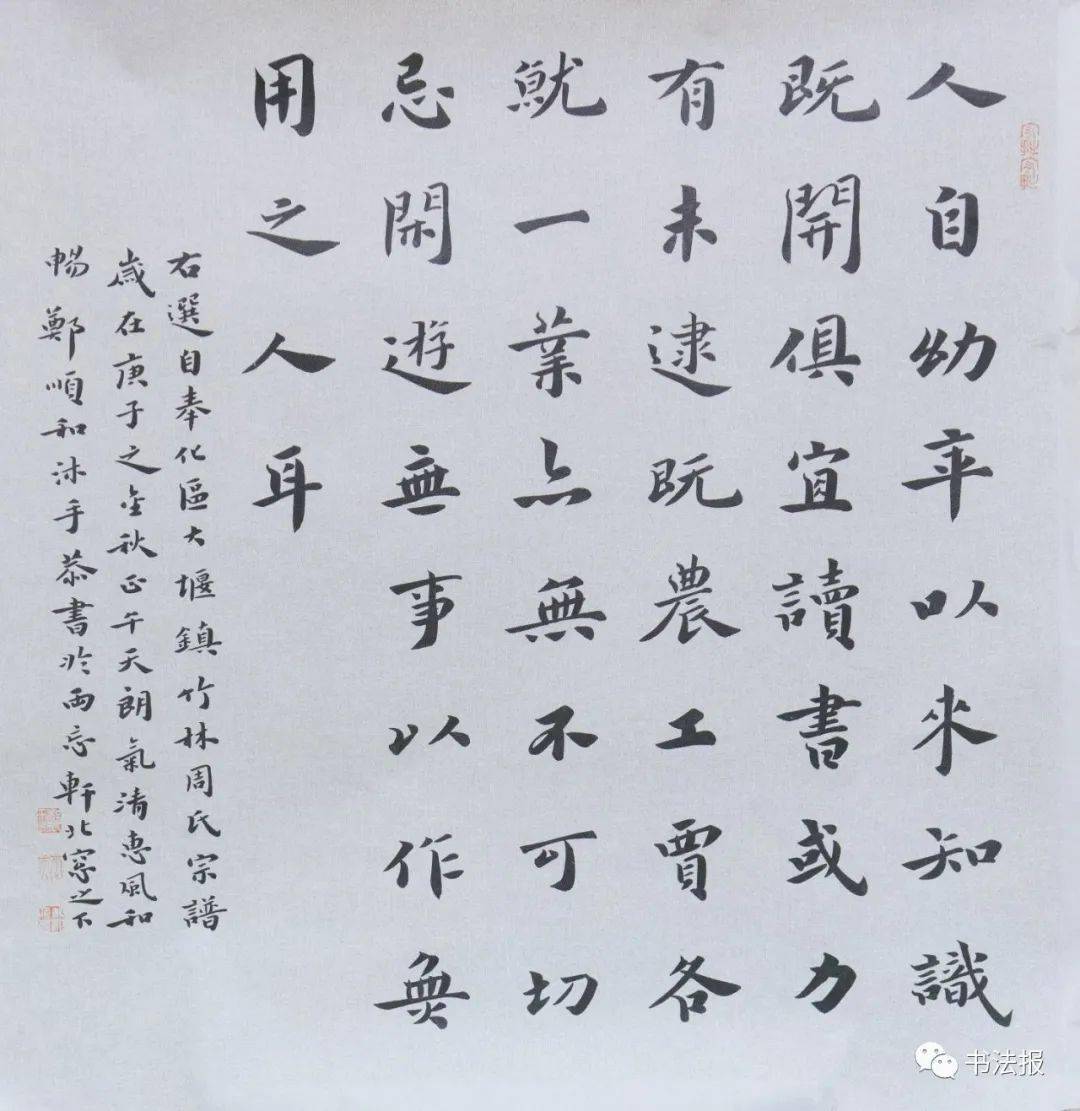 人自幼年以來知識
既開俱宜讀書或力
有未逮既農工賈各
就一業亦無不可切
忌閑遊無事以作無
用之人耳
右選自奉化區大堰鎮竹林周氏宗譜
歲在庚子之金秋正午天朗氣清惠風和
暢 鄭順和沐手恭書於兩忘軒北窓之下
书法报